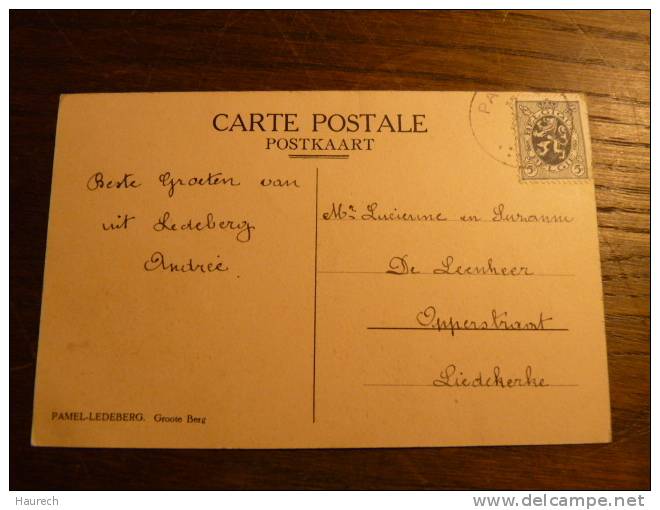 CARTE POSTALE
POSTKAART
Beste Groeten van
uit Ledeberg
Andrée
Mr. Lucienne en Suzanne
De Leenheer
Opperstraat
Liedekerke
PAMEL-LEDEBERG. Groote Berg
PA
BELGIQUE
BELGIË
5 5
Haurech
delcampe.net